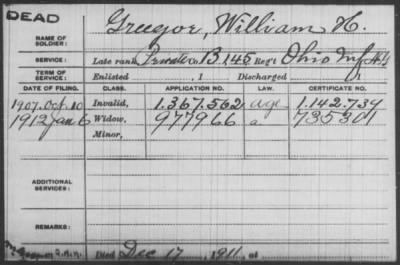 DEAD
NAME OF SOLDIER: Greegor, William H.
SERVICE: Late rank Private Co. B 145 Reg't Ohio Inf.
TERM OF SERVICE: Enlisted , 1 Discharged , 1
DATE OF FILING. CLASS. APPLICATION NO. LAW. CERTIFICATE NO.
1907. Oct. 10 Invalid, 1.367.562 age 1.142.739
1912 Jan 6 Widow, 977966 a 735301
Minor,
ADDITIONAL SERVICES:
REMARKS:
Died Dec 17, 1911, at